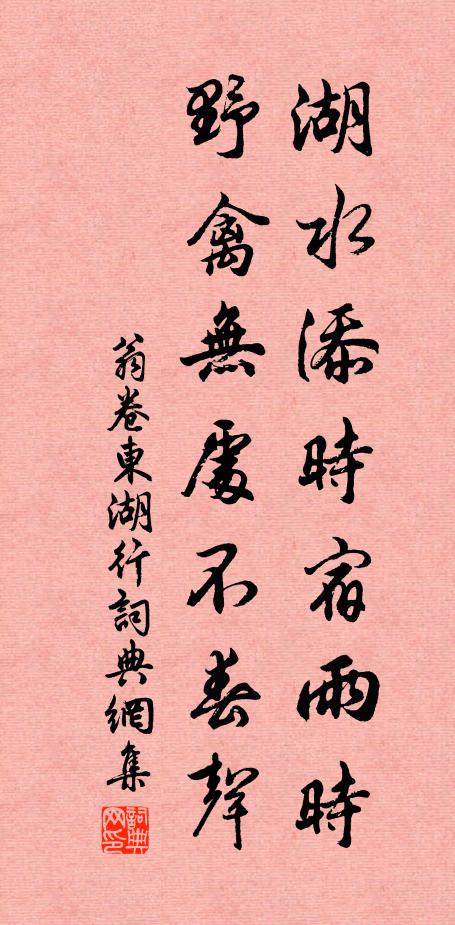 湖水添時宿雨時
野禽無處不春聲
翁卷東湖行詞典網集
詞典
网印